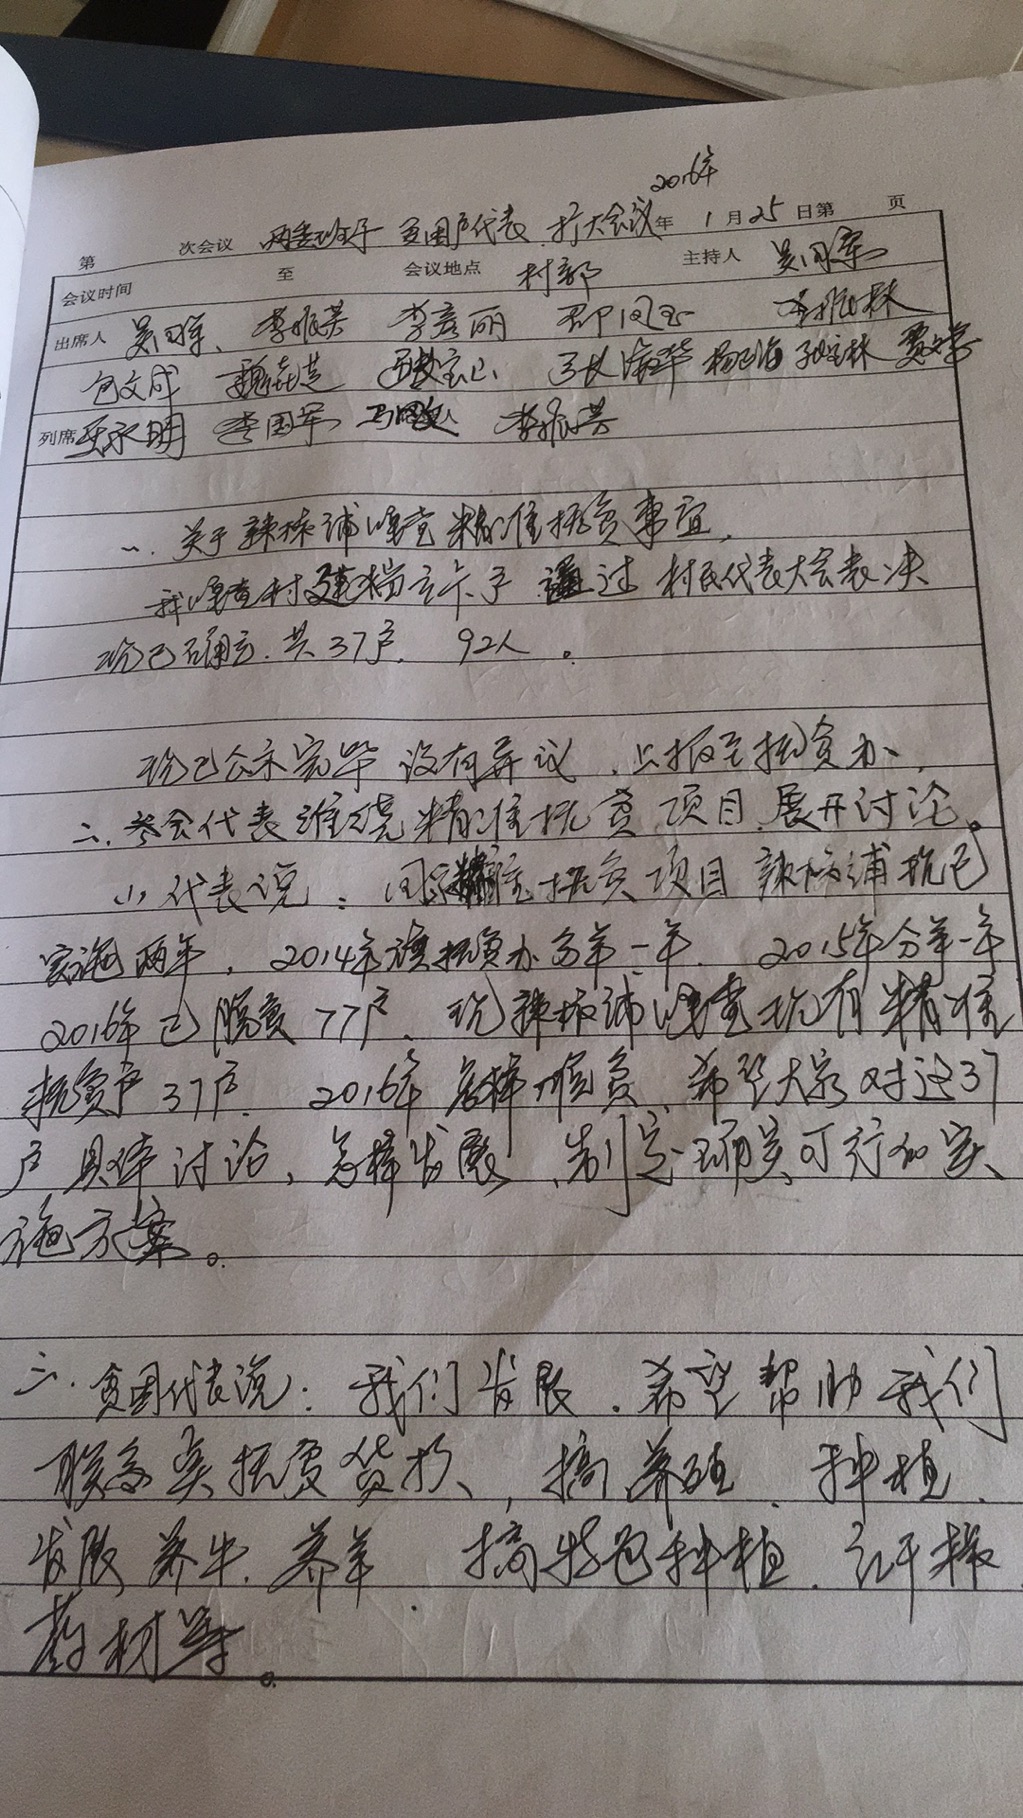 2016年
第 次会议 两委班子 贫困户代表 扩大会议 年 1 月 25 日第 页
会议时间 至 会议地点 村部 主持人 吴国军
出席人 吴国军、 李振英 李彦丽 李振林
包文成 杨玉海 贾文学
列席 王永明 李国军 李振英
一. 关于辣椒铺嘎查精准扶贫事宜,
我嘎查村建档立卡户 通过 村民代表大会表决
现已确定. 共37户, 92人 。
现已公示完毕 没有异议 . 上报至扶贫办,
二. 参会代表谁绕精准扶贫 项目 展开讨论。
(1) 代表说 : 国家精准扶贫项目 辣椒铺现已
实施两年 , 2014年旗扶贫办 第一年. 2015年 第一年
2016年已脱贫77户. 现辣椒铺嘎查现有精准
扶贫户37户. 2016年怎样脱贫, 希望大家对这37
户具体讨论, 怎样发展, 制定 可行的实
施方案。
三. 贫困代表说: 我们发展 . 希望帮助我们
联系 扶贫贷款, 搞养殖. 种植.
发展养牛. 养羊 搞特色种植. 红干椒
药材等。